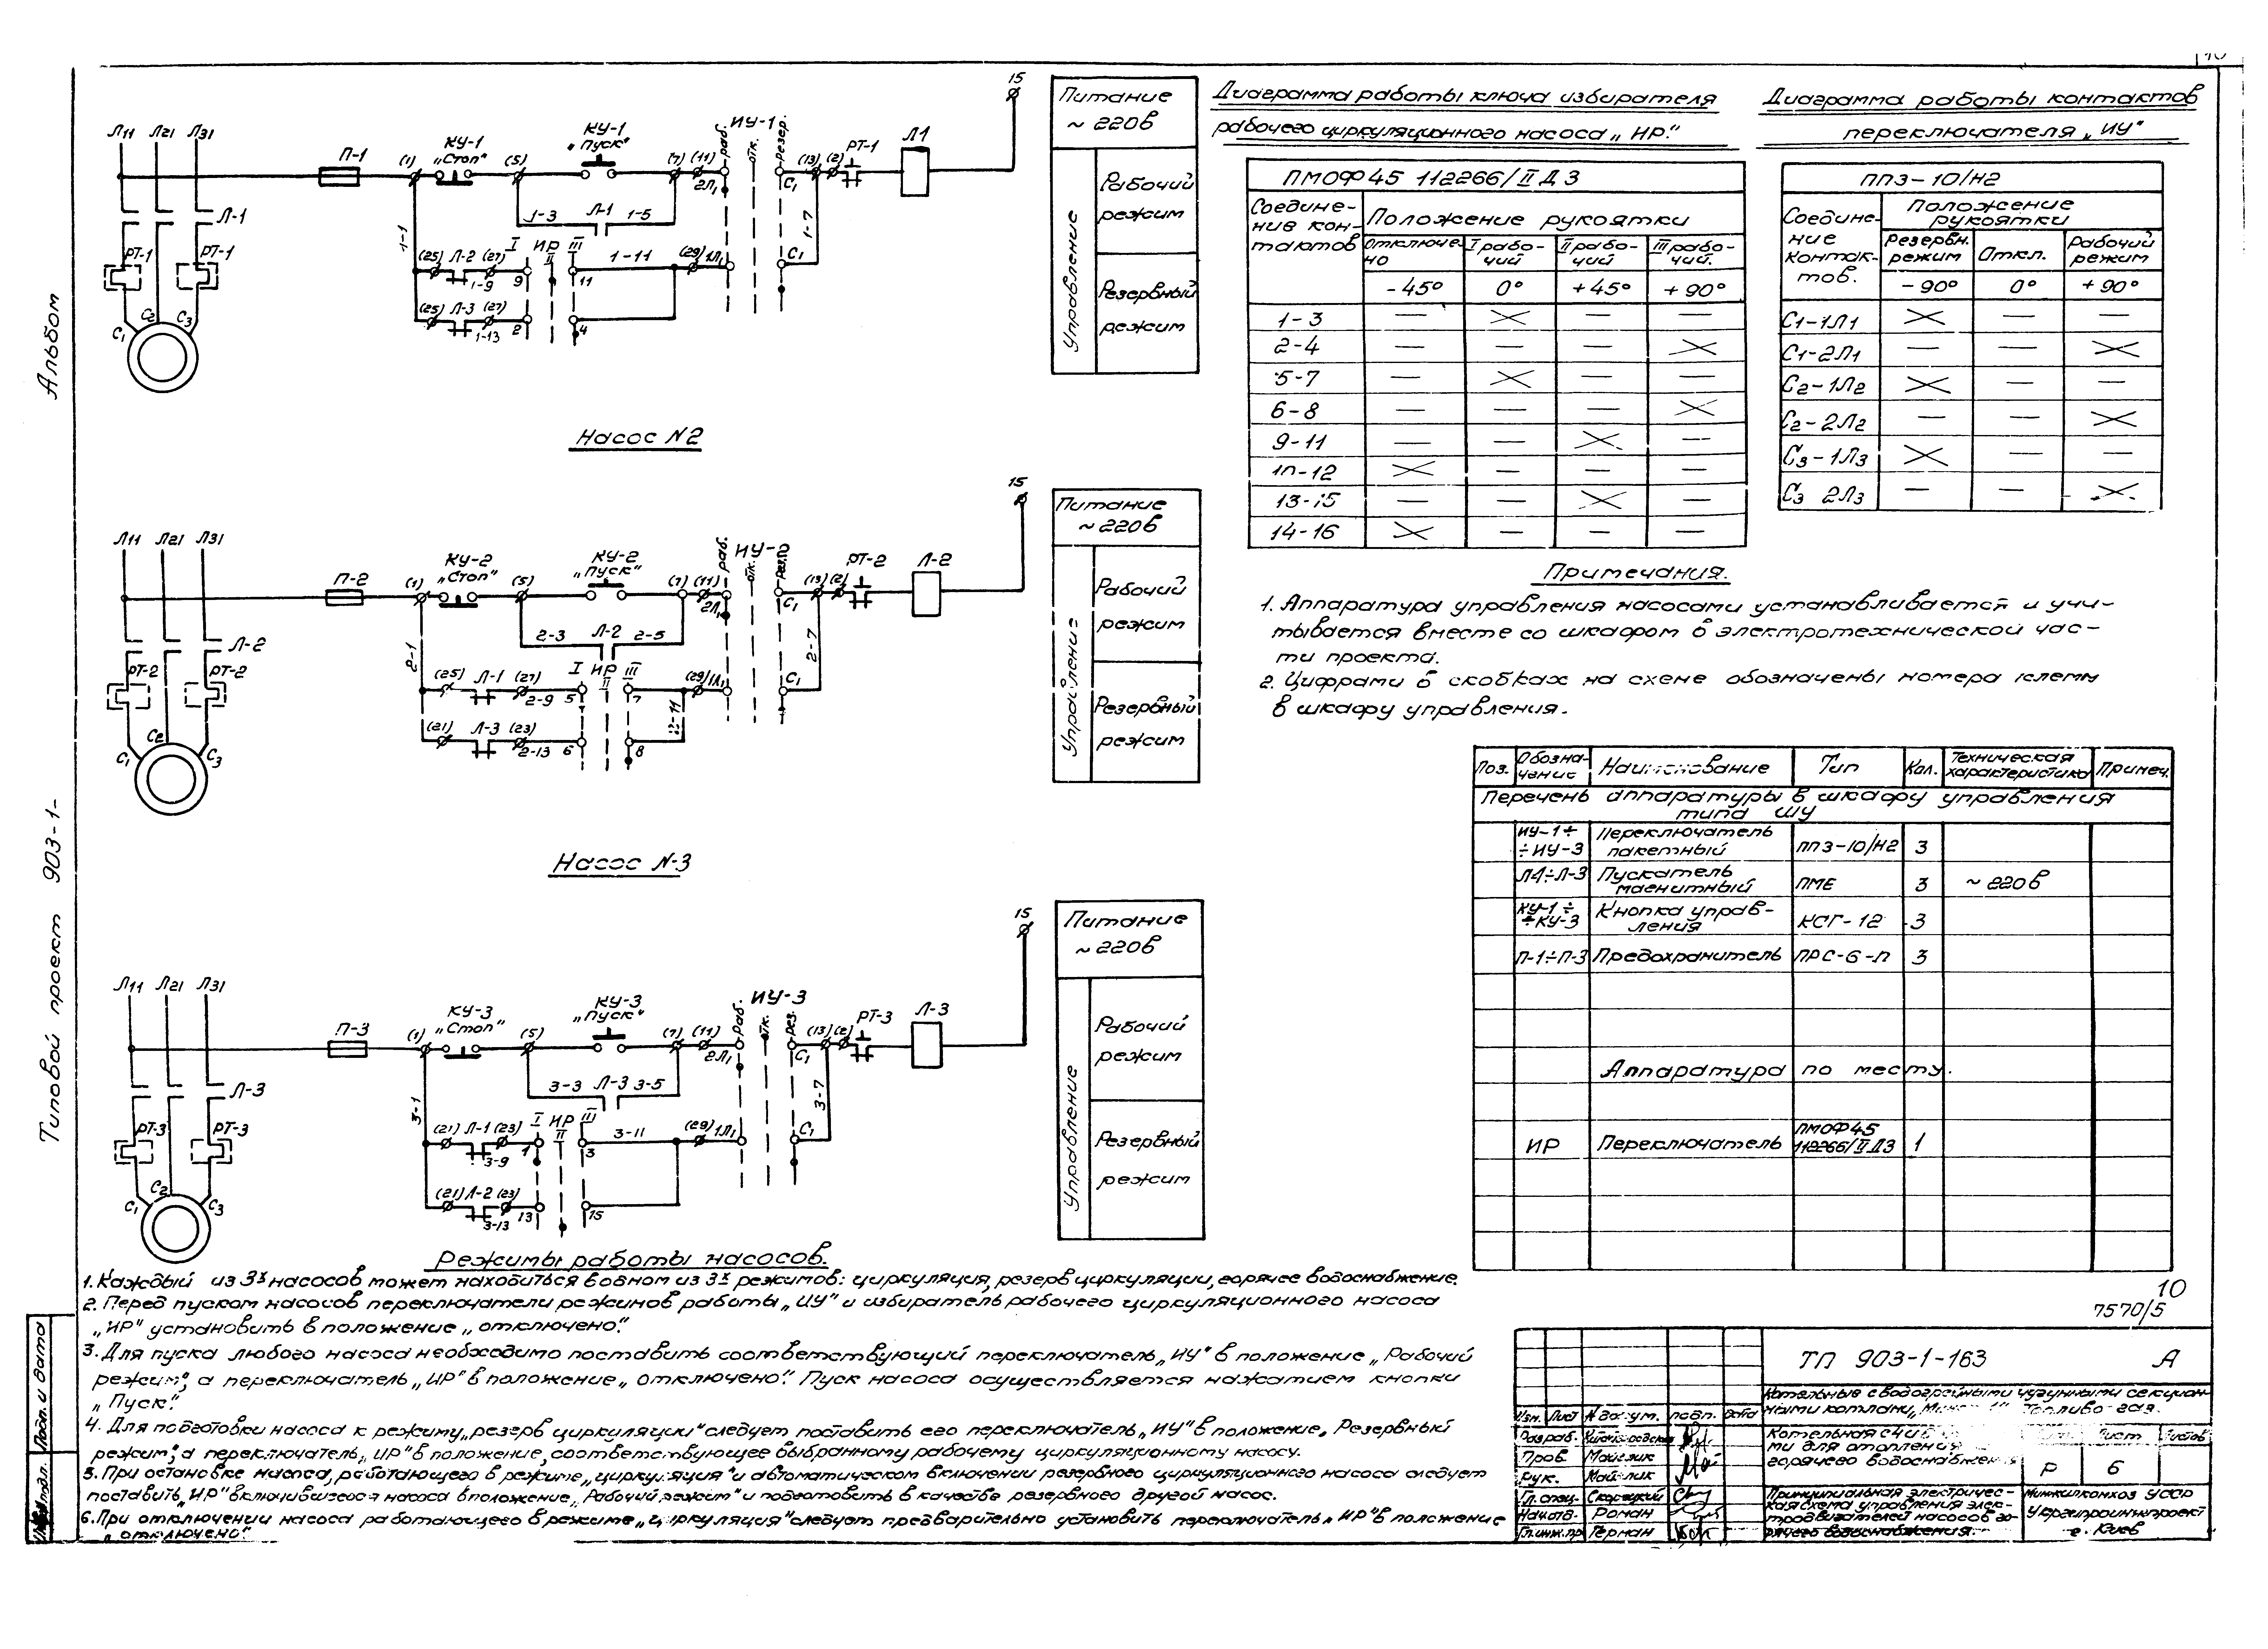 Альбом
Типовой проект 903-1-
Подп. и дата
Л11 Л21 Л31
П-1
(1)
КУ-1
„Стоп"
(5)
КУ-1
„Пуск"
(7) (11)
2Л1
раб.
ИУ-1
отк.
Резер.
С1
(13) (2)
РТ-1
Л1
15
Л-1
РТ-1 РТ-1
С1 С2 С3
1-1
1-3 Л-1 1-5
1-7
(25) Л-2 (27)
1-9
I ИР III
II
9 11
1-11
(29) 1Л1
С1
(25) Л-3 (27)
1-13
2 4
Питание
~ 220в
Управление
Рабочий
режим
Резервный
режим
Насос N2
Л11 Л21 Л31
П-2
(1)
КУ-2
„Стоп"
(5)
КУ-2
„Пуск"
(7) (11)
2Л1
раб.
ИУ-
отк.
С1
(13) (2)
РТ-2
Л-2
15
Л-2
РТ-2 РТ-2
С1 С2 С3
2-1
2-3 Л-2 2-5
2-7
(25) Л-1 (27)
2-9
I ИР III
II
5 7
(29) 1Л1
С1
(21) Л-3 (23)
2-13
6 8
2-11
Питание
~ 220в
Управление
Рабочий
режим
Резервный
режим
Насос N-3
Л11 Л21 Л31
П-3
(1)
КУ-3
„Стоп"
(5)
КУ-3
„Пуск"
(7) (11)
2Л1
раб.
ИУ-3
отк.
рез.
С1
(13) (2)
РТ-3
Л-3
15
Л-3
РТ-3 РТ-3
С1 С2 С3
3-1
3-3 Л-3 3-5
3-7
(21) Л-1 (23)
3-9
I ИР III
II
1 3
3-11
(29) 1Л1
С1
(21) Л-2 (23)
3-13
13 15
Питание
~ 220в
Управление
Рабочий
режим
Резервный
режим
Диаграмма работы ключа избирателя
рабочего циркуляционного насоса „ИР."
ПМОФ45 112266/II Д3
Соедине-
ние кон-
тактов
Положение рукоятки
Отключе-
но
I рабо-
чий
II рабо-
чий
III рабо-
чий.
-45° 0° +45° +90°
1-3 — X — —
2-4 — — — X
5-7 — X — —
6-8 — — — X
9-11 — — X —
10-12 X — — —
13-15 — — X —
14-16 X — — —
Диаграмма работы контактов
переключателя „ИУ"
ПП3-10/Н2
Соедине-
ние
контак-
тов.
Положение
рукоятки
Резервн.
режим
Откл.
Рабочий
режим
-90° 0° +90°
С1-1Л1 X — —
С1-2Л1 — — X
С2-1Л2 X — —
С2-2Л2 — — X
С3-1Л3 X — —
С3 2Л3 — — X
Примечания.
1. Аппаратура управления насосами устанавливается и учи-
тывается вместе со шкафом в электротехнической час-
ти проекта.
2. Цифрами в скобках на схеме обозначены номера клемм
в шкафу управления.
Поз. Обозна-
чение Наименование Тип Кол. Техническая
характеристика Примеч.
Перечень аппаратуры в шкафу управления
типа ШУ
ИУ-1÷
÷ИУ-3 Переключатель
пакетный ПП3-10/Н2 3
Л1÷Л-3 Пускатель
магнитный ПМЕ 3 ~ 220в
КУ-1÷
÷КУ-3 Кнопка управ-
ления КСГ-12 3
П-1÷П-3 Предохранитель ПРС-6-П 3
Аппаратура по месту.
ИР Переключатель ПМОФ45
112266/II Д3 1
Режимы работы насосов.
1. Каждый из 3х насосов может находиться в одном из 3х режимов: циркуляция, резерв циркуляции, горячее водоснабжение.
2. Перед пуском насосов переключатели режимов работы „ИУ" и избиратель рабочего циркуляционного насоса
„ИР" установить в положение „отключено".
3. Для пуска любого насоса необходимо поставить соответствующий переключатель „ИУ" в положение „Рабочий
режим", а переключатель „ИР" в положение „отключено". Пуск насоса осуществляется нажатием кнопки
„Пуск".
4. Для подготовки насоса к режиму „резерв циркуляции" следует поставить его переключатель „ИУ" в положение „Резервный
режим", а переключатель „ИР" в положение, соответствующее выбранному рабочему циркуляционному насосу.
5. При остановке насоса, работающего в режиме „циркуляция" и автоматическом включении резервного циркуляционного насоса следует
поставить „ИР" включившегося насоса в положение „Рабочий режим" и подготовить в качестве резервного другой насос.
6. При отключении насоса работающего в режиме „циркуляция" следует предварительно установить переключатель „ИР" в положение
„отключено".
10
7570/5
ТП 903-1-163 А
Котельные с водогрейными чугунными секцион-
ными котлами Топливо-газ.
Изм. Лист N докум. подп. Дата
Разраб.
Пров. Майслик
Рук. Майслик
Гл.спец. Скаржецкий
Нач.отд. Роман
Гл.инж.пр Герман
Котельная
ми для отопления
горячего водоснабжения
Лист Листов
Р 6
Принципиальная электричес-
кая схема управления элек-
тродвигателей насосов го-
рячего водоснабжения.
Минжилкомхоз УССР
Укргипроинжпроект
г. Киев